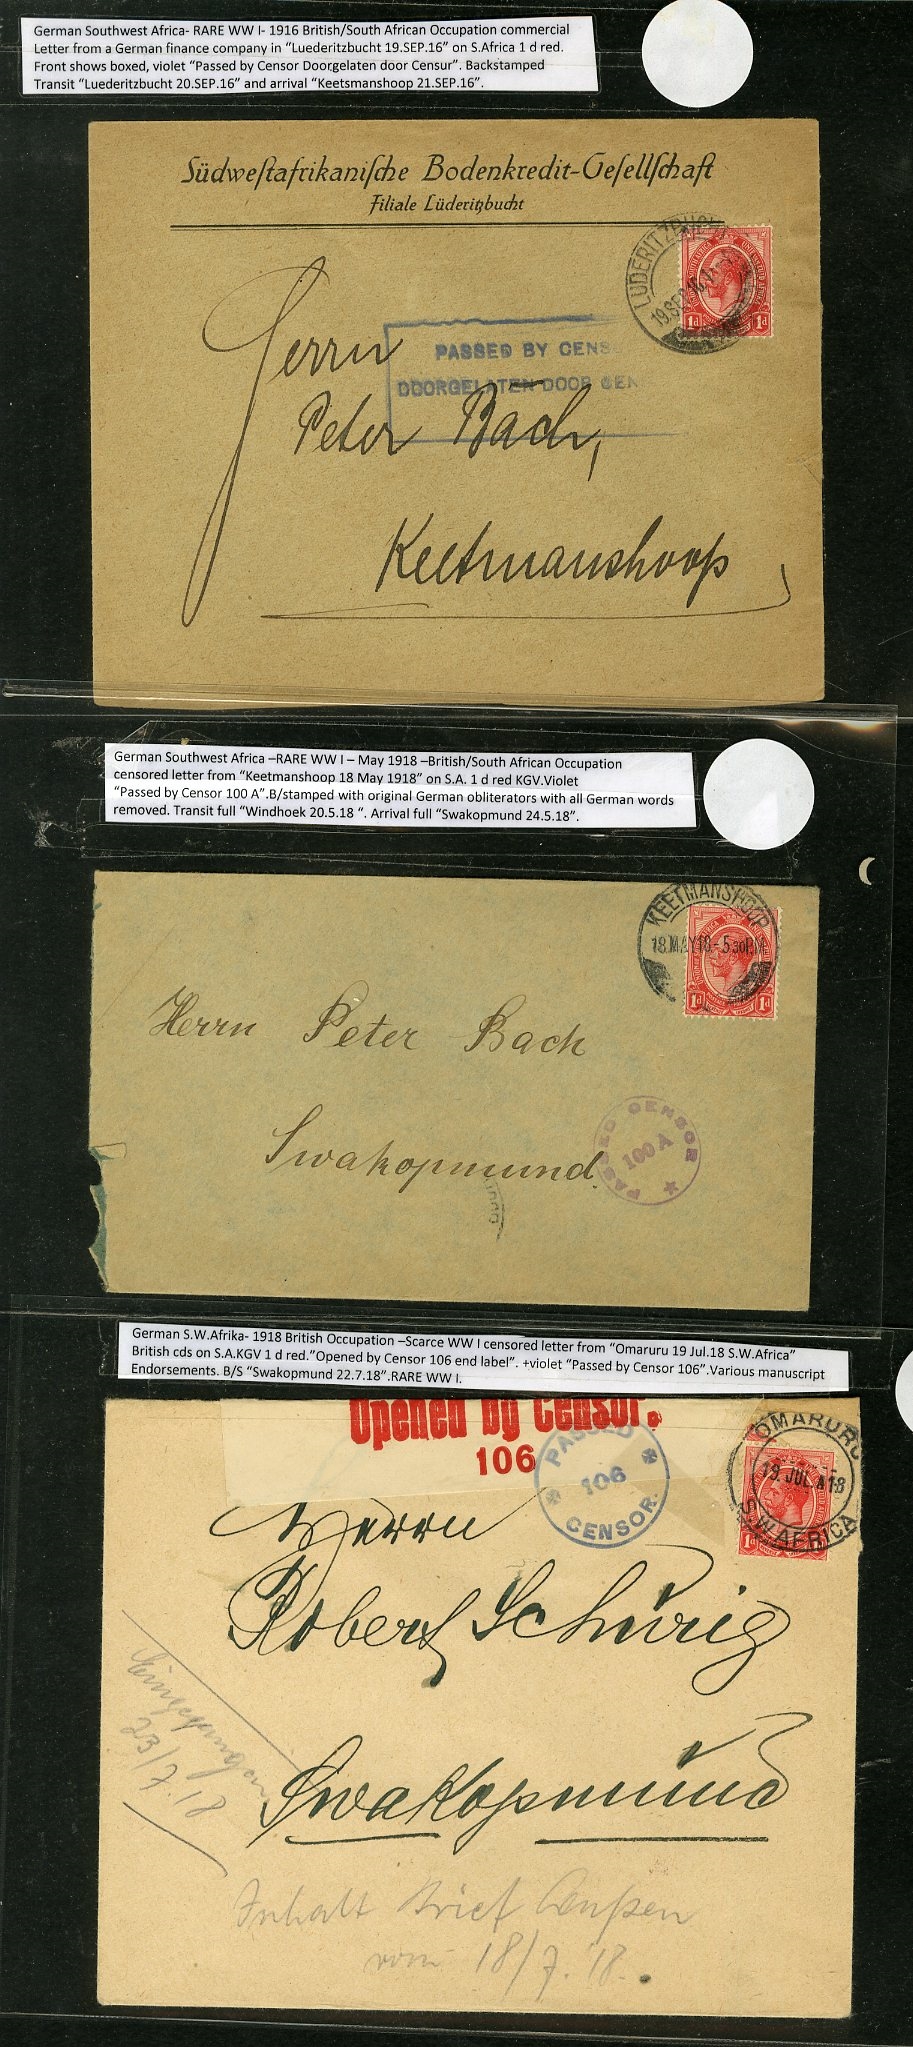 German Southwest Africa- RARE WW I- 1916 British/South African Occupation commercial
Letter from a German finance company in “Luederitzbucht 19.SEP.16” on S.Africa 1 d red.
Front shows boxed, violet “Passed by Censor Doorgelaten door Censur”. Backstamped
Transit “Luederitzbucht 20.SEP.16” and arrival “Keetsmanshoop 21.SEP.16”.
Südwestafrikanische Bodenkredit-Gesellschaft
Filiale Lüderitzbucht
LÜDERITZBUCHT
19 SEP 16
1d 1d
PASSED BY CENS
DOORGELATEN DOOR CENS
Herrn
Peter Bach,
Keetmanshoop
German Southwest Africa –RARE WW I – May 1918 –British/South African Occupation
censored letter from “Keetmanshoop 18 May 1918” on S.A. 1 d red KGV.Violet
“Passed by Censor 100 A”.B/stamped with original German obliterators with all German words
removed. Transit full “Windhoek 20.5.18 “. Arrival full “Swakopmund 24.5.18”.
KEETMANSHOOP
18 MAY 18 - 5 30 PM
1d 1d
Herrn Peter Bach
Swakopmund.
PASSED CENSOR
100 A
German S.W.Afrika- 1918 British Occupation –Scarce WW I censored letter from “Omaruru 19 Jul.18 S.W.Africa”
British cds on S.A.KGV 1 d red.”Opened by Censor 106 end label”. +violet “Passed by Censor 106”.Various manuscript
Endorsements. B/S “Swakopmund 22.7.18”.RARE WW I.
Opened by Censor.
106
PASSED
106
CENSOR.
OMARURU
19. JUL. A 18
S.W. AFRICA
1d
Herrn
Robert Schürig
Swakopmünd
Eingegangen
23/7.18
Inhalt Brief
vom 18/7.18.